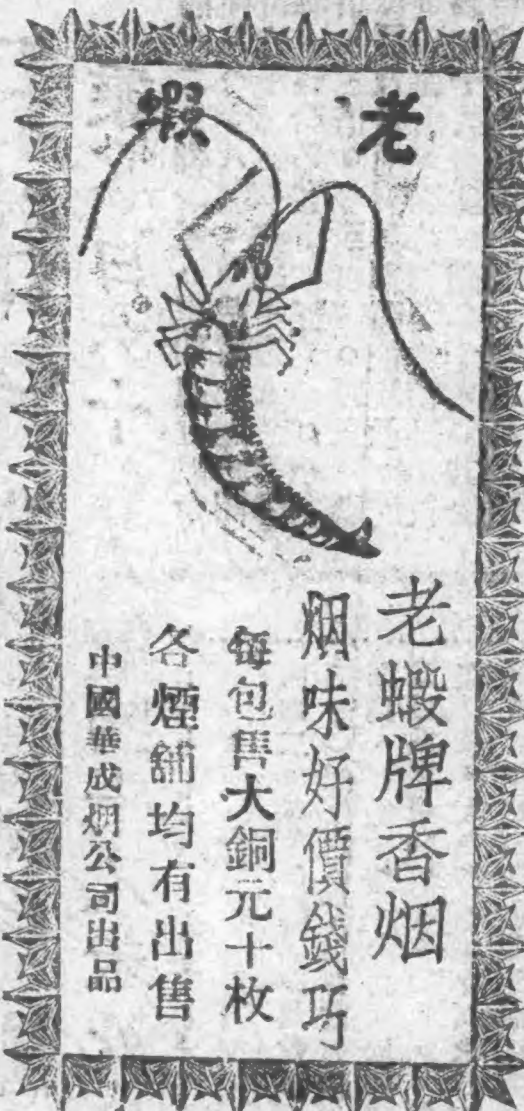 老蝦
老蝦牌香烟
烟味好價錢巧
每包售大銅元十枚
各煙舖均有出售
中國華成烟公司出品